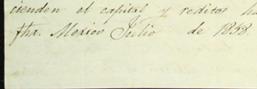 cienden el capital y reditos ha
fha. Mexico Julio de 1858